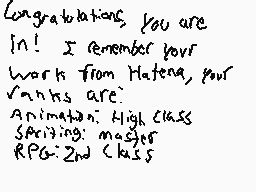 Congratulations, you are
In! I remember your
work from Hatena, your
ranks are:
Animation: High Class
Spriting: master
RPG: 2nd Class